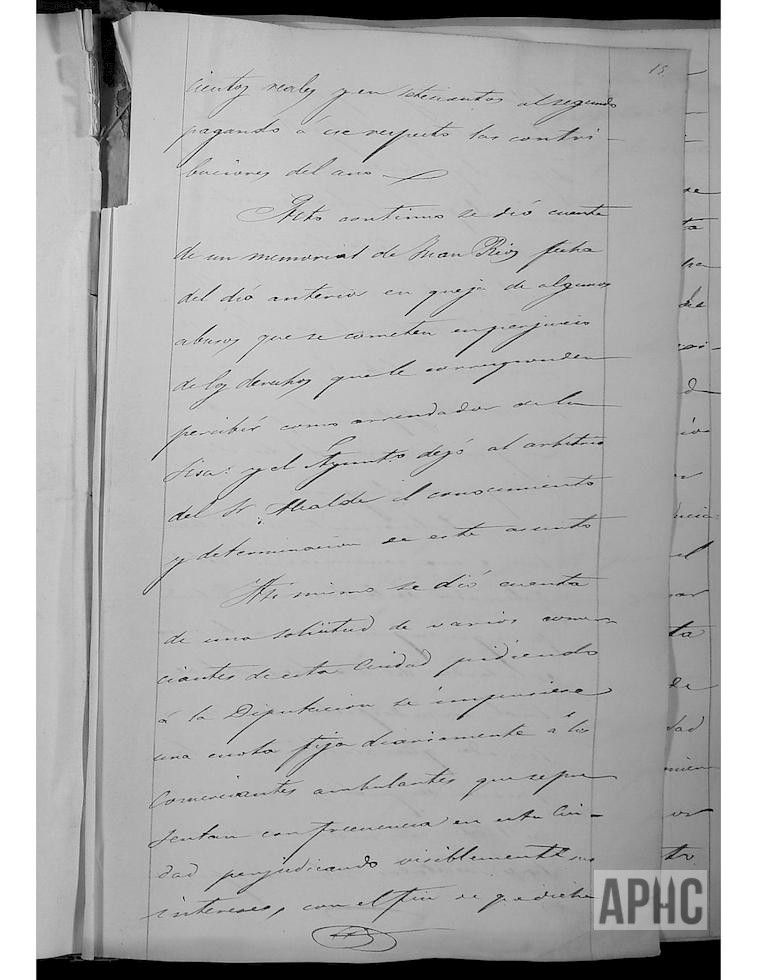 15
cientos reales y en setecientos al segundo
pagando á ese respecto las contri-
buciones del año
Acto continuo se dió cuenta
de un memorial de Juan Rios fecha
del dia anterior en queja de algunos
abusos que se cometen en perjuicio
de los derechos que le corresponden
percibir como arrendador de la
sisa: y el Ayunt.o dejó al arbitrio
del Sr Alcalde el conocimiento
y determinacion de este asunto
Asi mismo se dió cuenta
de una solicitud de varios comer-
ciantes de esta Ciudad pidiendo
á la Diputacion se impusiese
una cuota fija diariamente á los
Comerciantes ambulantes que se pre
sentan con frecuencia en esta Ciu-
dad perjudicando visiblemente sus
intereses, con el fin de que dicha
APHC